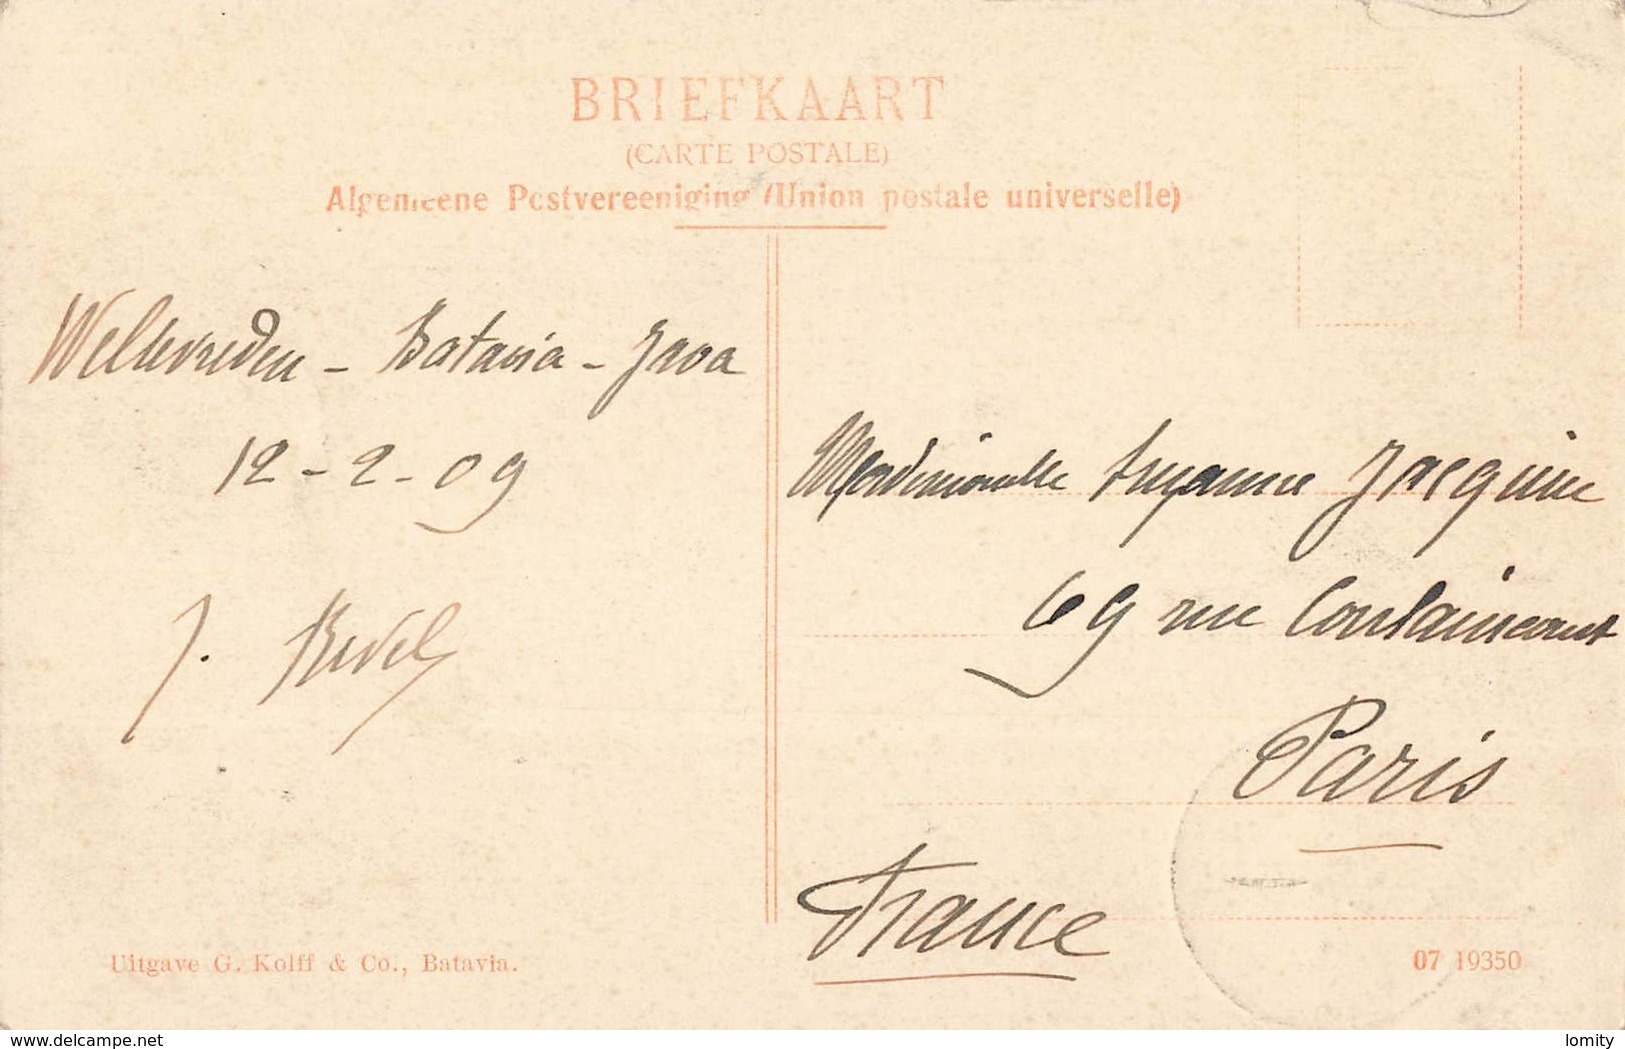 BRIEFKAART
(CARTE POSTALE)
Algemeene Postvereeniging (Union postale universelle)
Weltevreden - Batavia - Java
12-2-09
J.
Mademoiselle Suzanne Jacquin
69 rue Caulaincourt
Paris
France
Uitgave G. Kolff & Co., Batavia.
07 19350
www.delcampe.net
lomity